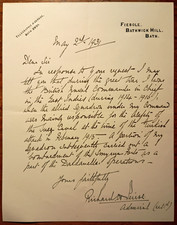 FIESOLE,
BATHWICK HILL,
BATH.
May 2nd 1921.
Dear Sir
In response to your request I may
tell you that during the great war I was
the British Naval Commander in Chief
in the East Indies (during 1914-15-
when the Allied Squadron under my Command
was mainly responsible for the defence of
the Suez Canal at the time of the Turkish
attack in February 1915 - A portion of my
Squadron subsequently carried out a
bombardment of the Smyrna forts as a
part of the Dardanelles operations -
Yours faithfully
Richard H Peirse
Admiral